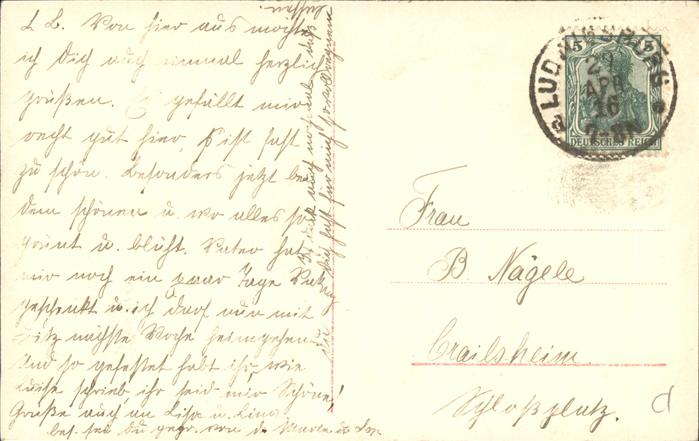 L. B. Von hier aus möchte
ich Dich auch einmal herzlich
grüßen. Es gefällt mir
recht gut hier, ist fast
zu schön. Besonders jetzt bei
dem schönen u. wo alles so
grünt u. blüht. Vater hat
mir noch ein paar Tage
geschenkt u. ich darf nun mit
Fritz nächste Woche heimgehen.
Und so gefestet habt ihr, wie
Luise schrieb, ihr seid mir Schöne!
Grüße auch an Lisa u. Lina
bes. sei Du gegr. von d.
LUDWIGSBURG
29
APR
16
7-8N
5 5
DEUTSCHES REICH
Frau
B. Nägele
Crailsheim
Schloßplatz.